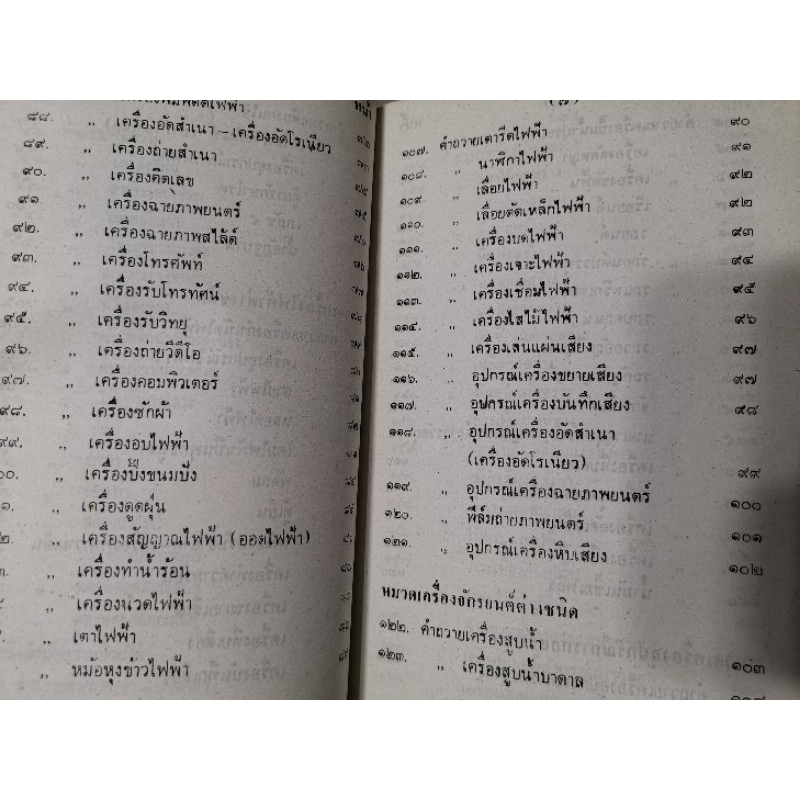 เครื่องพิมพ์ดีดไฟฟ้า หน้า
๘๘. ,, เครื่องอัดสำเนา - เครื่องอัดโรเนียว
๘๙. ,, เครื่องถ่ายสำเนา
๙๐. ,, เครื่องคิดเลข
๙๑. ,, เครื่องฉายภาพยนตร์
๙๒. ,, เครื่องฉายภาพสไล้ด์
๙๓. ,, เครื่องโทรศัพท์
๙๔. ,, เครื่องรับโทรทัศน์
๙๕. ,, เครื่องรับวิทยุ
๙๖. ,, เครื่องถ่ายวีดีโอ
๙๗. ,, เครื่องคอมพิวเตอร์
๙๘. ,, เครื่องซักผ้า
๙๙. ,, เครื่องอบไฟฟ้า
๐๐. ,, เครื่องปิ้งขนมปัง
๑. ,, เครื่องดูดฝุ่น
๒. ,, เครื่องสัญญาณไฟฟ้า (ออดไฟฟ้า)
๓. ,, เครื่องทำน้ำร้อน
,, เครื่องนวดไฟฟ้า
,, เตาไฟฟ้า
,, หม้อหุงข้าวไฟฟ้า
(๗)
๑๐๗. คำถวายเตารีดไฟฟ้า ๙๐
๑๐๘. ,, นาฬิกาไฟฟ้า ๙๑
๑๐๙. ,, เลื่อยไฟฟ้า ๙๒
๑๑๐. ,, เลื่อยตัดเหล็กไฟฟ้า ๙๒
๑๑๑. ,, เครื่องบดไฟฟ้า ๙๓
๑๑๒. ,, เครื่องเจาะไฟฟ้า ๙๔
๑๑๓. ,, เครื่องเชื่อมไฟฟ้า ๙๕
๑๑๔. ,, เครื่องไสไม้ไฟฟ้า ๙๖
๑๑๕. ,, เครื่องเล่นแผ่นเสียง ๙๗
๑๑๖. ,, อุปกรณ์เครื่องขยายเสียง ๙๗
๑๑๗. ,, อุปกรณ์เครื่องบันทึกเสียง ๙๘
๑๑๘. ,, อุปกรณ์เครื่องอัดสำเนา
(เครื่องอัดโรเนียว) ๙๙
๑๑๙. ,, อุปกรณ์เครื่องฉายภาพยนตร์ ๑๐๐
๑๒๐. ,, ฟีล์มถ่ายภาพยนตร์ ๑๐๑
๑๒๑. ,, อุปกรณ์เครื่องหีบเสียง ๑๐๒
หมวดเครื่องจักรยนต์ต่างชนิด
๑๒๒. คำถวายเครื่องสูบน้ำ ๑๐๓
๑๒๓. ,, เครื่องสูบน้ำบาดาล